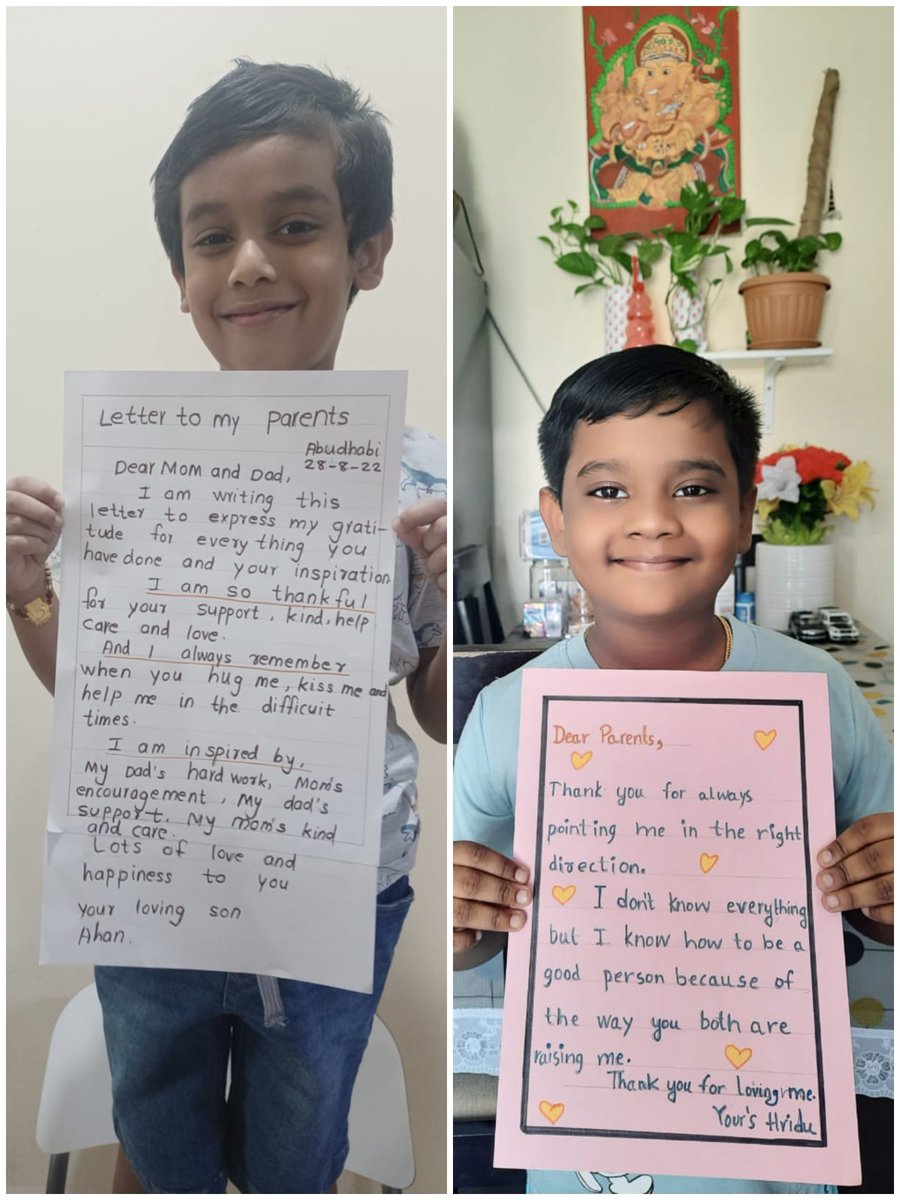 Letter to my parents
Abudhabi
28-8-22
Dear Mom and Dad,
I am writing this
letter to express my grati-
tude for every thing you
have done and your inspiration
I am so thankful
for your support, kind, help
care and love.
And I always remember
when you hug me, kiss me and
help me in the difficult
times.
I am inspired by,
My Dad's hard work, Mom's
encouragement, My dad's
support. My mom's kind
and care.
Lots of love and
happiness to you
your loving son
Ahan.
Dear Parents,
Thank you for always
pointing me in the right
direction.
I don't know everything
but I know how to be a
good person because of
the way you both are
raising me.
Thank you for Loving me.
Your's Hridu